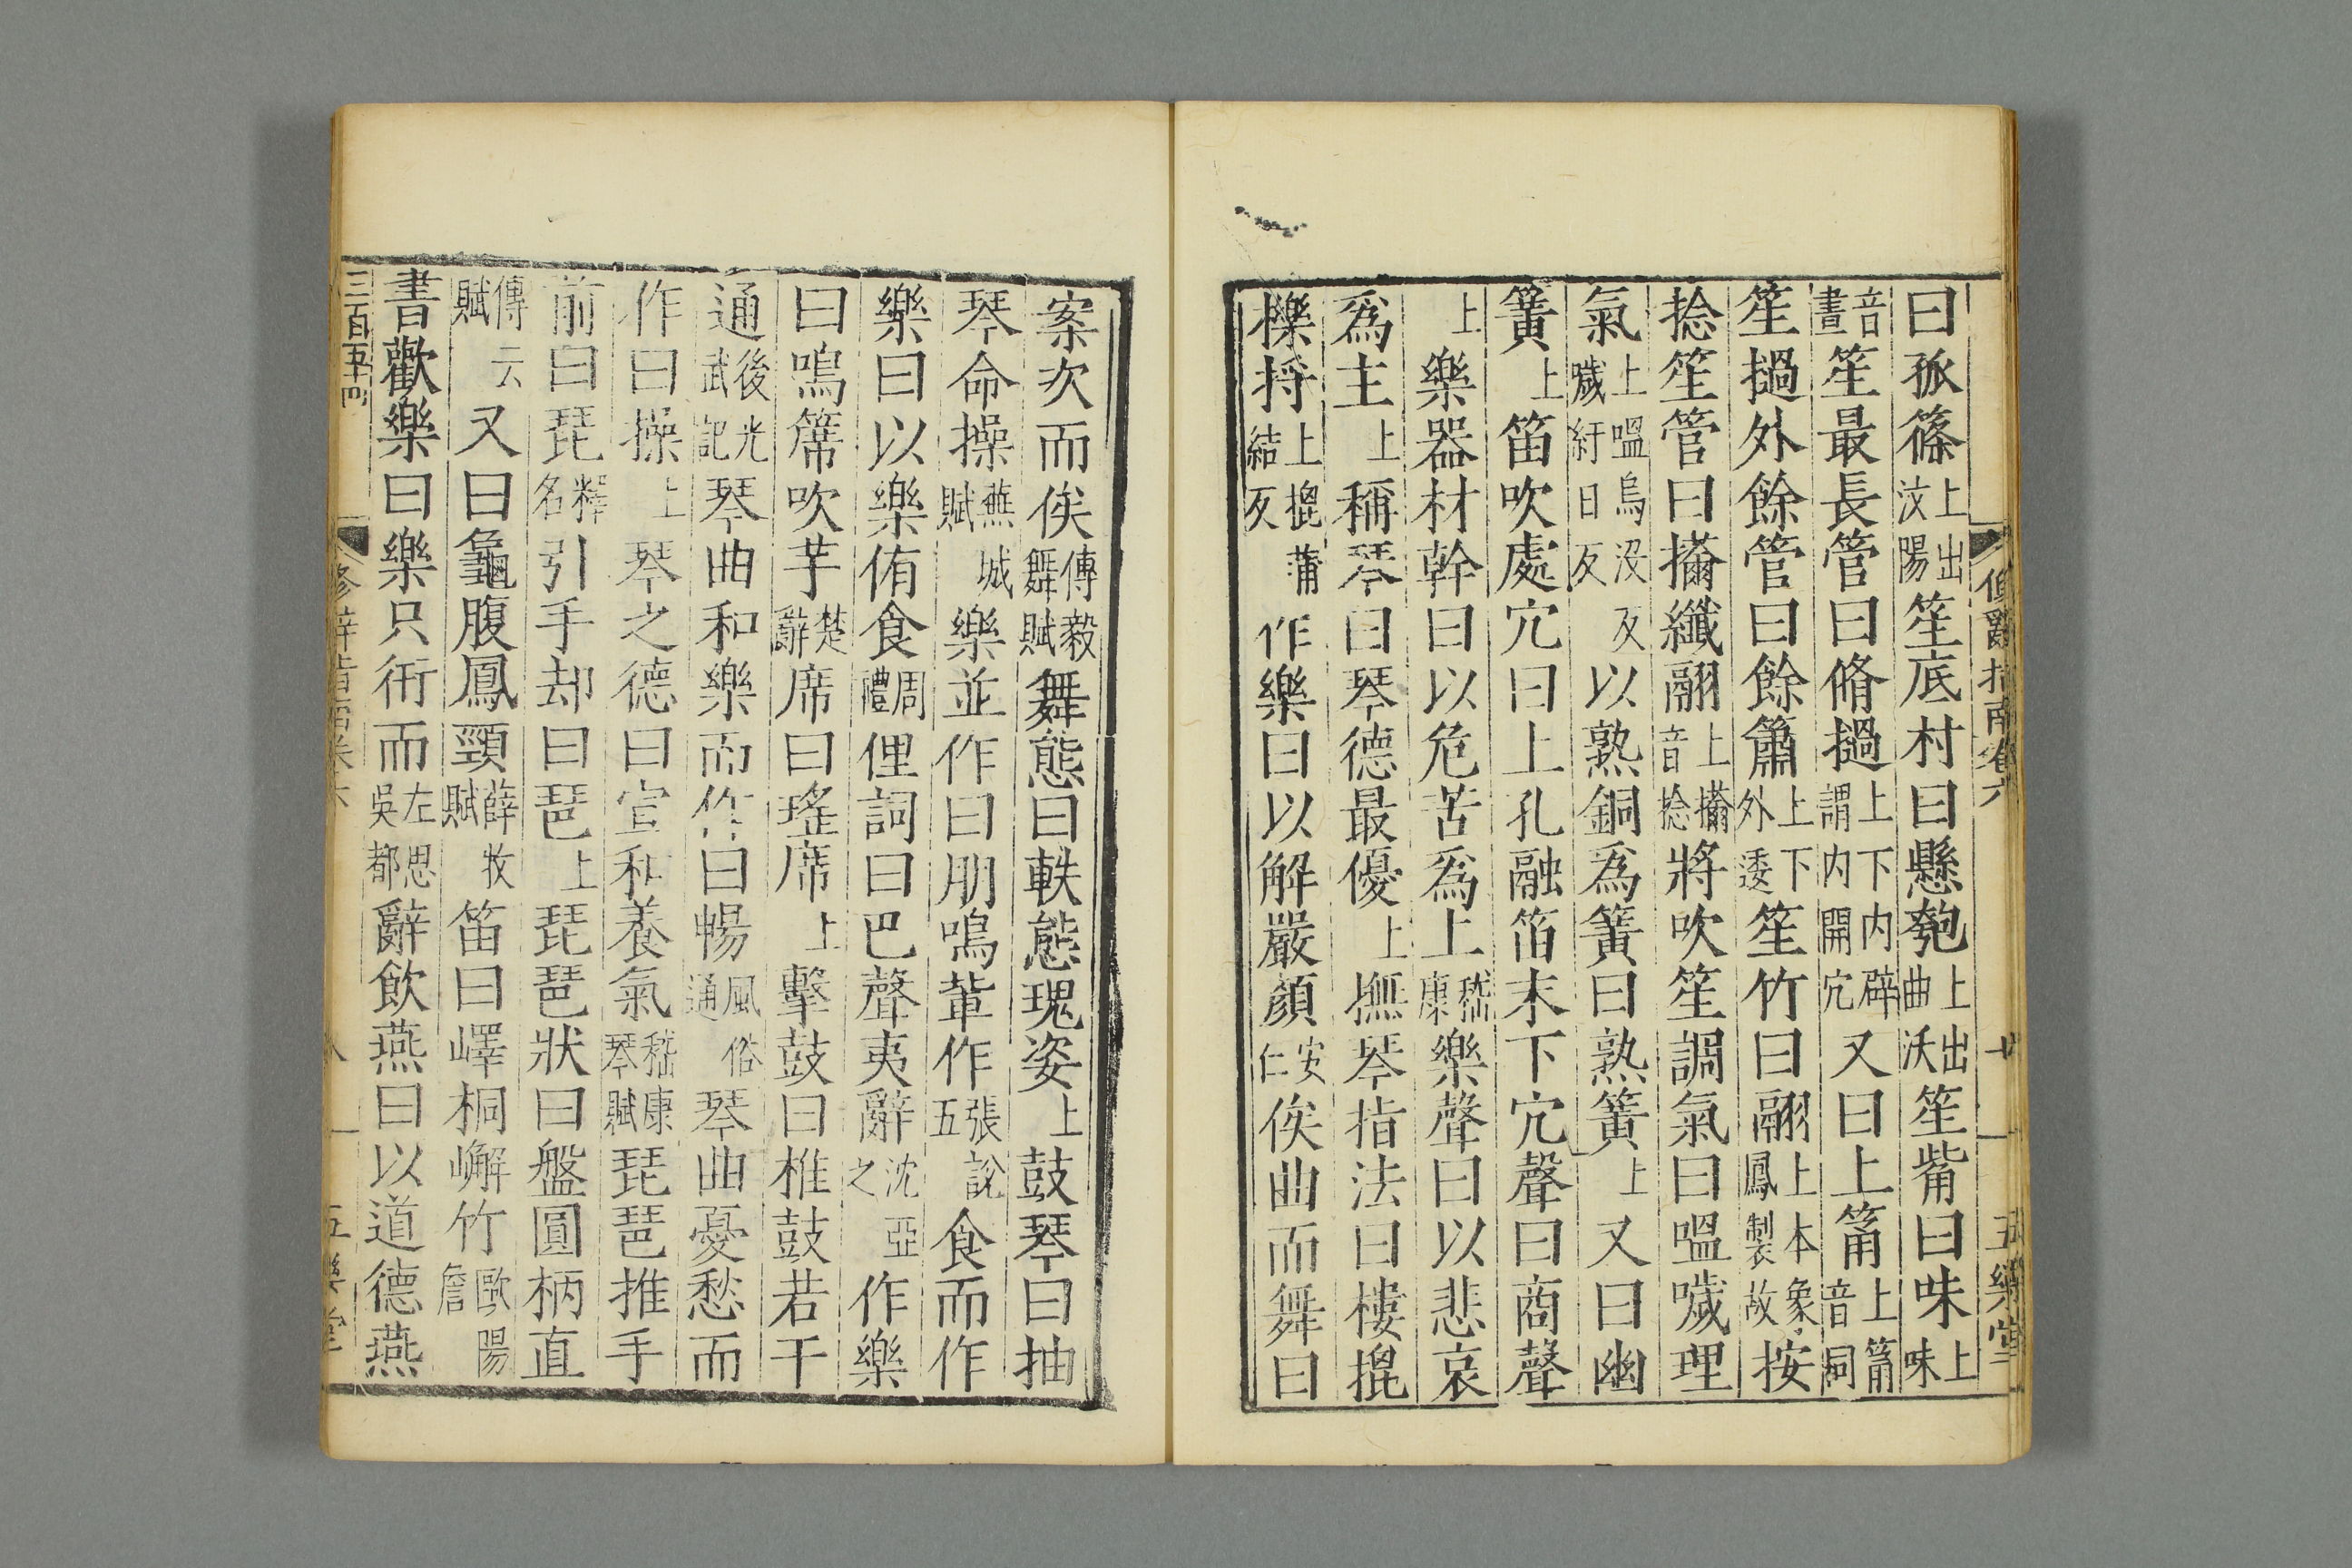 曰孤篠上出汶陽笙底村曰懸匏上出曲沃笙觜曰味上味
音晝笙最長管曰脩撾上下内辟謂内開穴又曰上筩上筩音侗
笙撾外餘管曰餘簫上下外逶笙竹曰翮上本象鳳製故按
捻笙管曰擫纖翮上擫音捻將吹笙調氣曰嗢噦理
氣上嗢烏没反噦紆日反以熟銅爲簧曰熟簧上又曰幽
簧上笛吹處穴曰上孔融笛末下穴聲曰商聲
上樂器材幹曰以危苦爲上嵇康樂聲曰以悲哀
爲主上稱琴曰琴德最優上撫琴指法曰摟㧰
櫟捋上㧰蒲結反作樂曰以解嚴顏安仁俟曲而舞曰
修辭指南卷六 五樂堂
案次而俟傅毅舞賦舞態曰軼態瑰姿上鼓琴曰抽
琴命操蕪城賦樂並作曰朋鳴輩作張說五食而作
樂曰以樂侑食周禮俚詞曰巴聲夷辭沈亞之作樂
曰鳴篪吹竽楚辭席曰瑤席上擊鼓曰椎鼓若干
通後光武記琴曲和樂而作曰暢風俗通琴曲憂愁而
作曰操上琴之德曰宣和養氣嵇康琴賦琵琶推手
前曰琵釋名引手却曰琶上琵琶狀曰盤圓柄直
傅云賦又曰龜腹鳳頸薛牧賦笛曰嶧桐嶰竹歐陽詹
書歡樂曰樂只衎而左思吳都辭飲燕曰以道德燕
三百五十四 修辭指南卷六 五樂堂